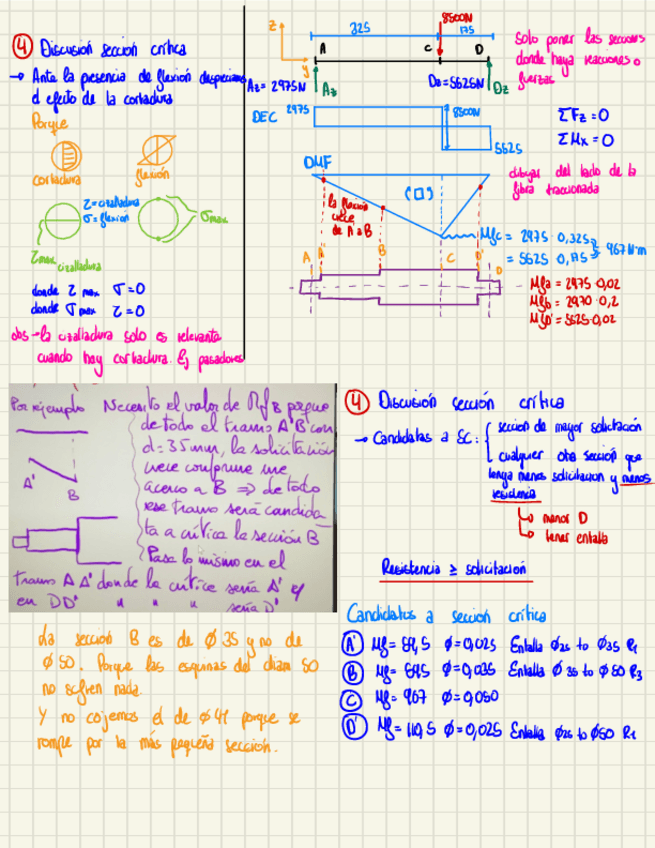 ④ Discusión sección crítica
→ Ante la presencia de flexión despreciamos
el efecto de la cortadura
Porque
cortadura flexión
Z = cizalladura
σ = flexión
σmax
Zmax
cizalladura
donde Z max σ=0
donde σ max Z=0
obs → la cizalladura solo es relevante
cuando hay cortadura. Ej pasadores
Z
y
325
8500N
175
A C D
Az = 2975N
Az
Dz = 5625N
Dz
DEC 2975
8500N
5625
DMF
la flexión
crece
de A a B
Mfc = 2975·0,325
= 5625·0,175
967 N·m
A A' B C D' D
Mfa = 2975·0,02
Mfb = 2970·0,2
MfD' = 5625·0,02
Solo poner las secciones
donde haya reacciones o
fuerzas
ΣFz = 0
ΣMx = 0
dibujar del lado de la
fibra traccionada
Por ejemplo
A'
B
Necesito el valor de Mf B porque
de todo el tramo A'B con
d=35mm, la solicitación
crece conforme me
acerco a B ⇒ de todo
ese tramo será candida
ta a crítica la sección B
Pasa lo mismo en el
tramo A A' donde la crítica sería A' y
en DD' " " " sería D'
La sección B es de ϕ 35 y no de
ϕ 50. Porque las esquinas del diam 50
no sufren nada.
Y no cojemos el de ϕ 41 porque se
rompe por la más pequeña sección.
④ Discusión sección crítica
→ Candidatas a SC:
sección de mayor solicitación
cualquier otra sección que
tenga menos solicitacion y menos
resistencia
menor D
tener entalla
Resistencia ≥ solicitación
Candidatos a sección crítica
A' Mf = 59,5 ϕ=0,025 Entalla ϕ25 to ϕ35 R1
B Mf = 595 ϕ=0,035 Entalla ϕ 35 to ϕ 50 R3
C Mf = 967 ϕ=0,050
D' Mf = 112,5 ϕ=0,025 Entalla ϕ25 to ϕ50 R1